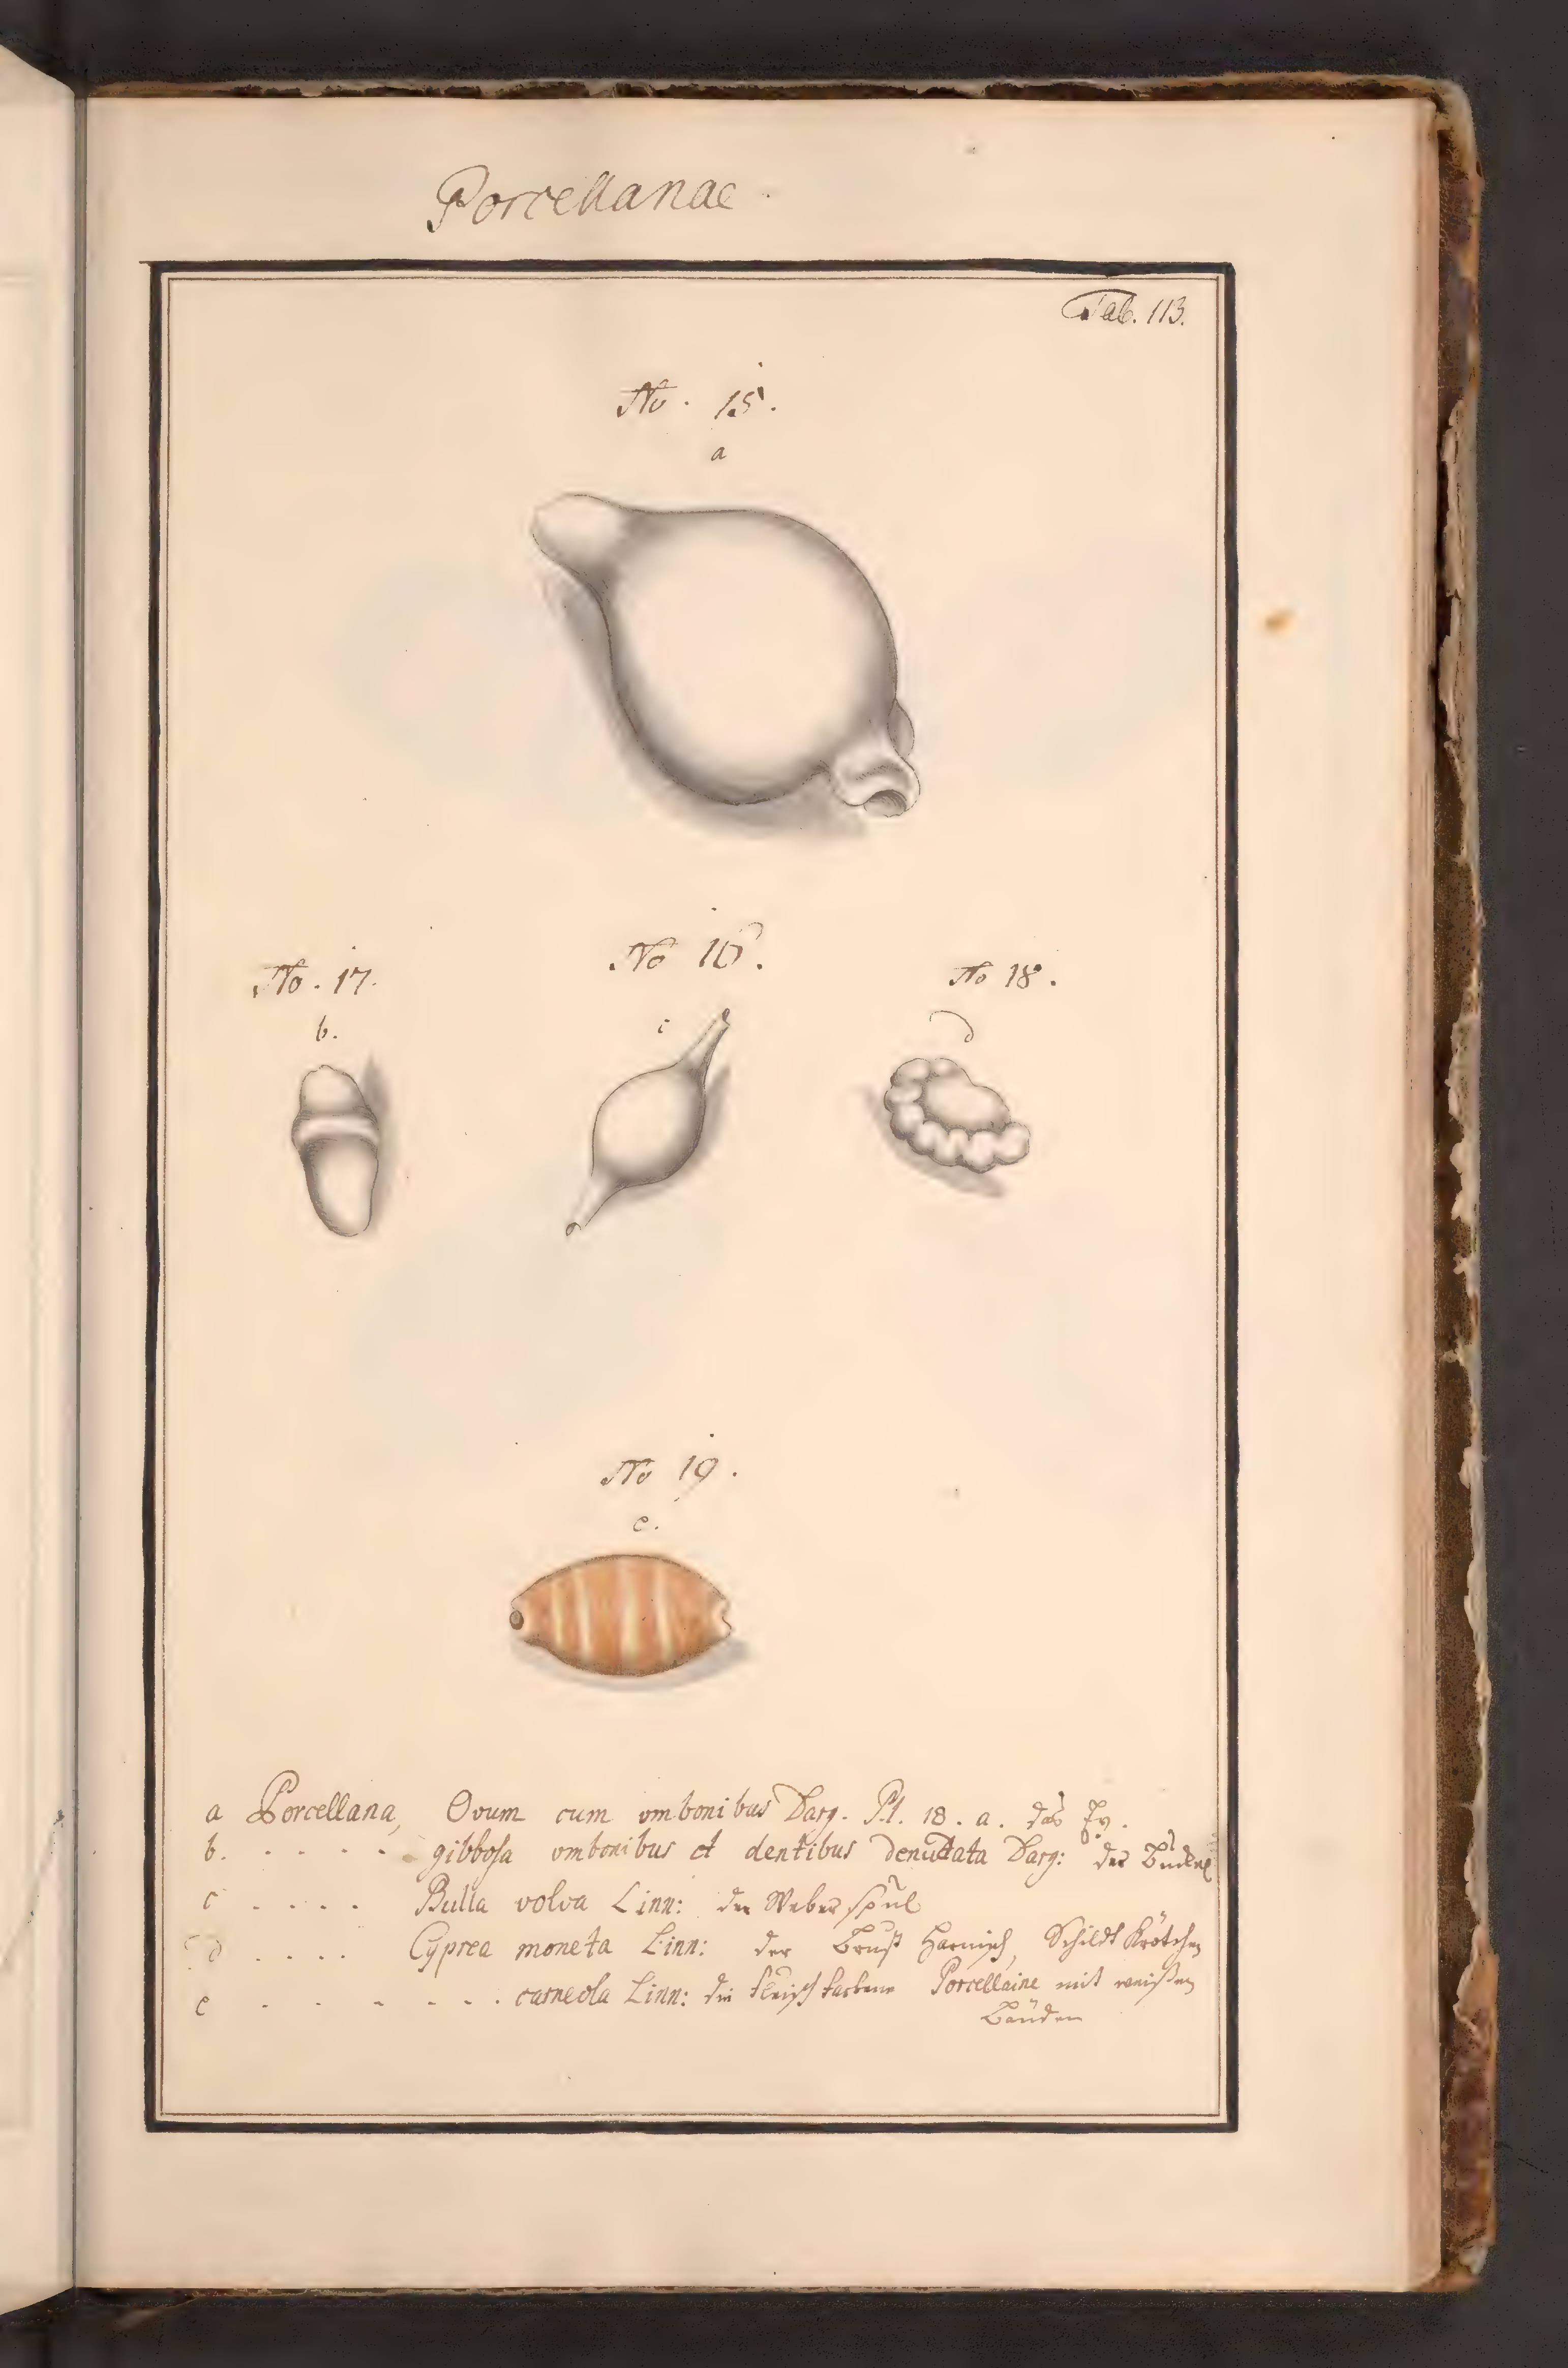 Porcellanae
Tab. 113.
No. 15.
a
No. 17.
No 16.
No 18.
b.
c
d
No 19.
e.
a Porcellana, Ovum cum umbonibus Darg. Pl. 18. a. das Ey.
b. . . . . . gibbosa umbonibus et dentibus denudata Darg: der
c . . . . Bulla volva Linn: der Weber spul
d . . . . Cyprea moneta Linn: der Brust Harnisch, Schildt Krötchen
e . . . . . . carneola Linn: die fleisch farbene Porcellaine mit weißen
Bänden